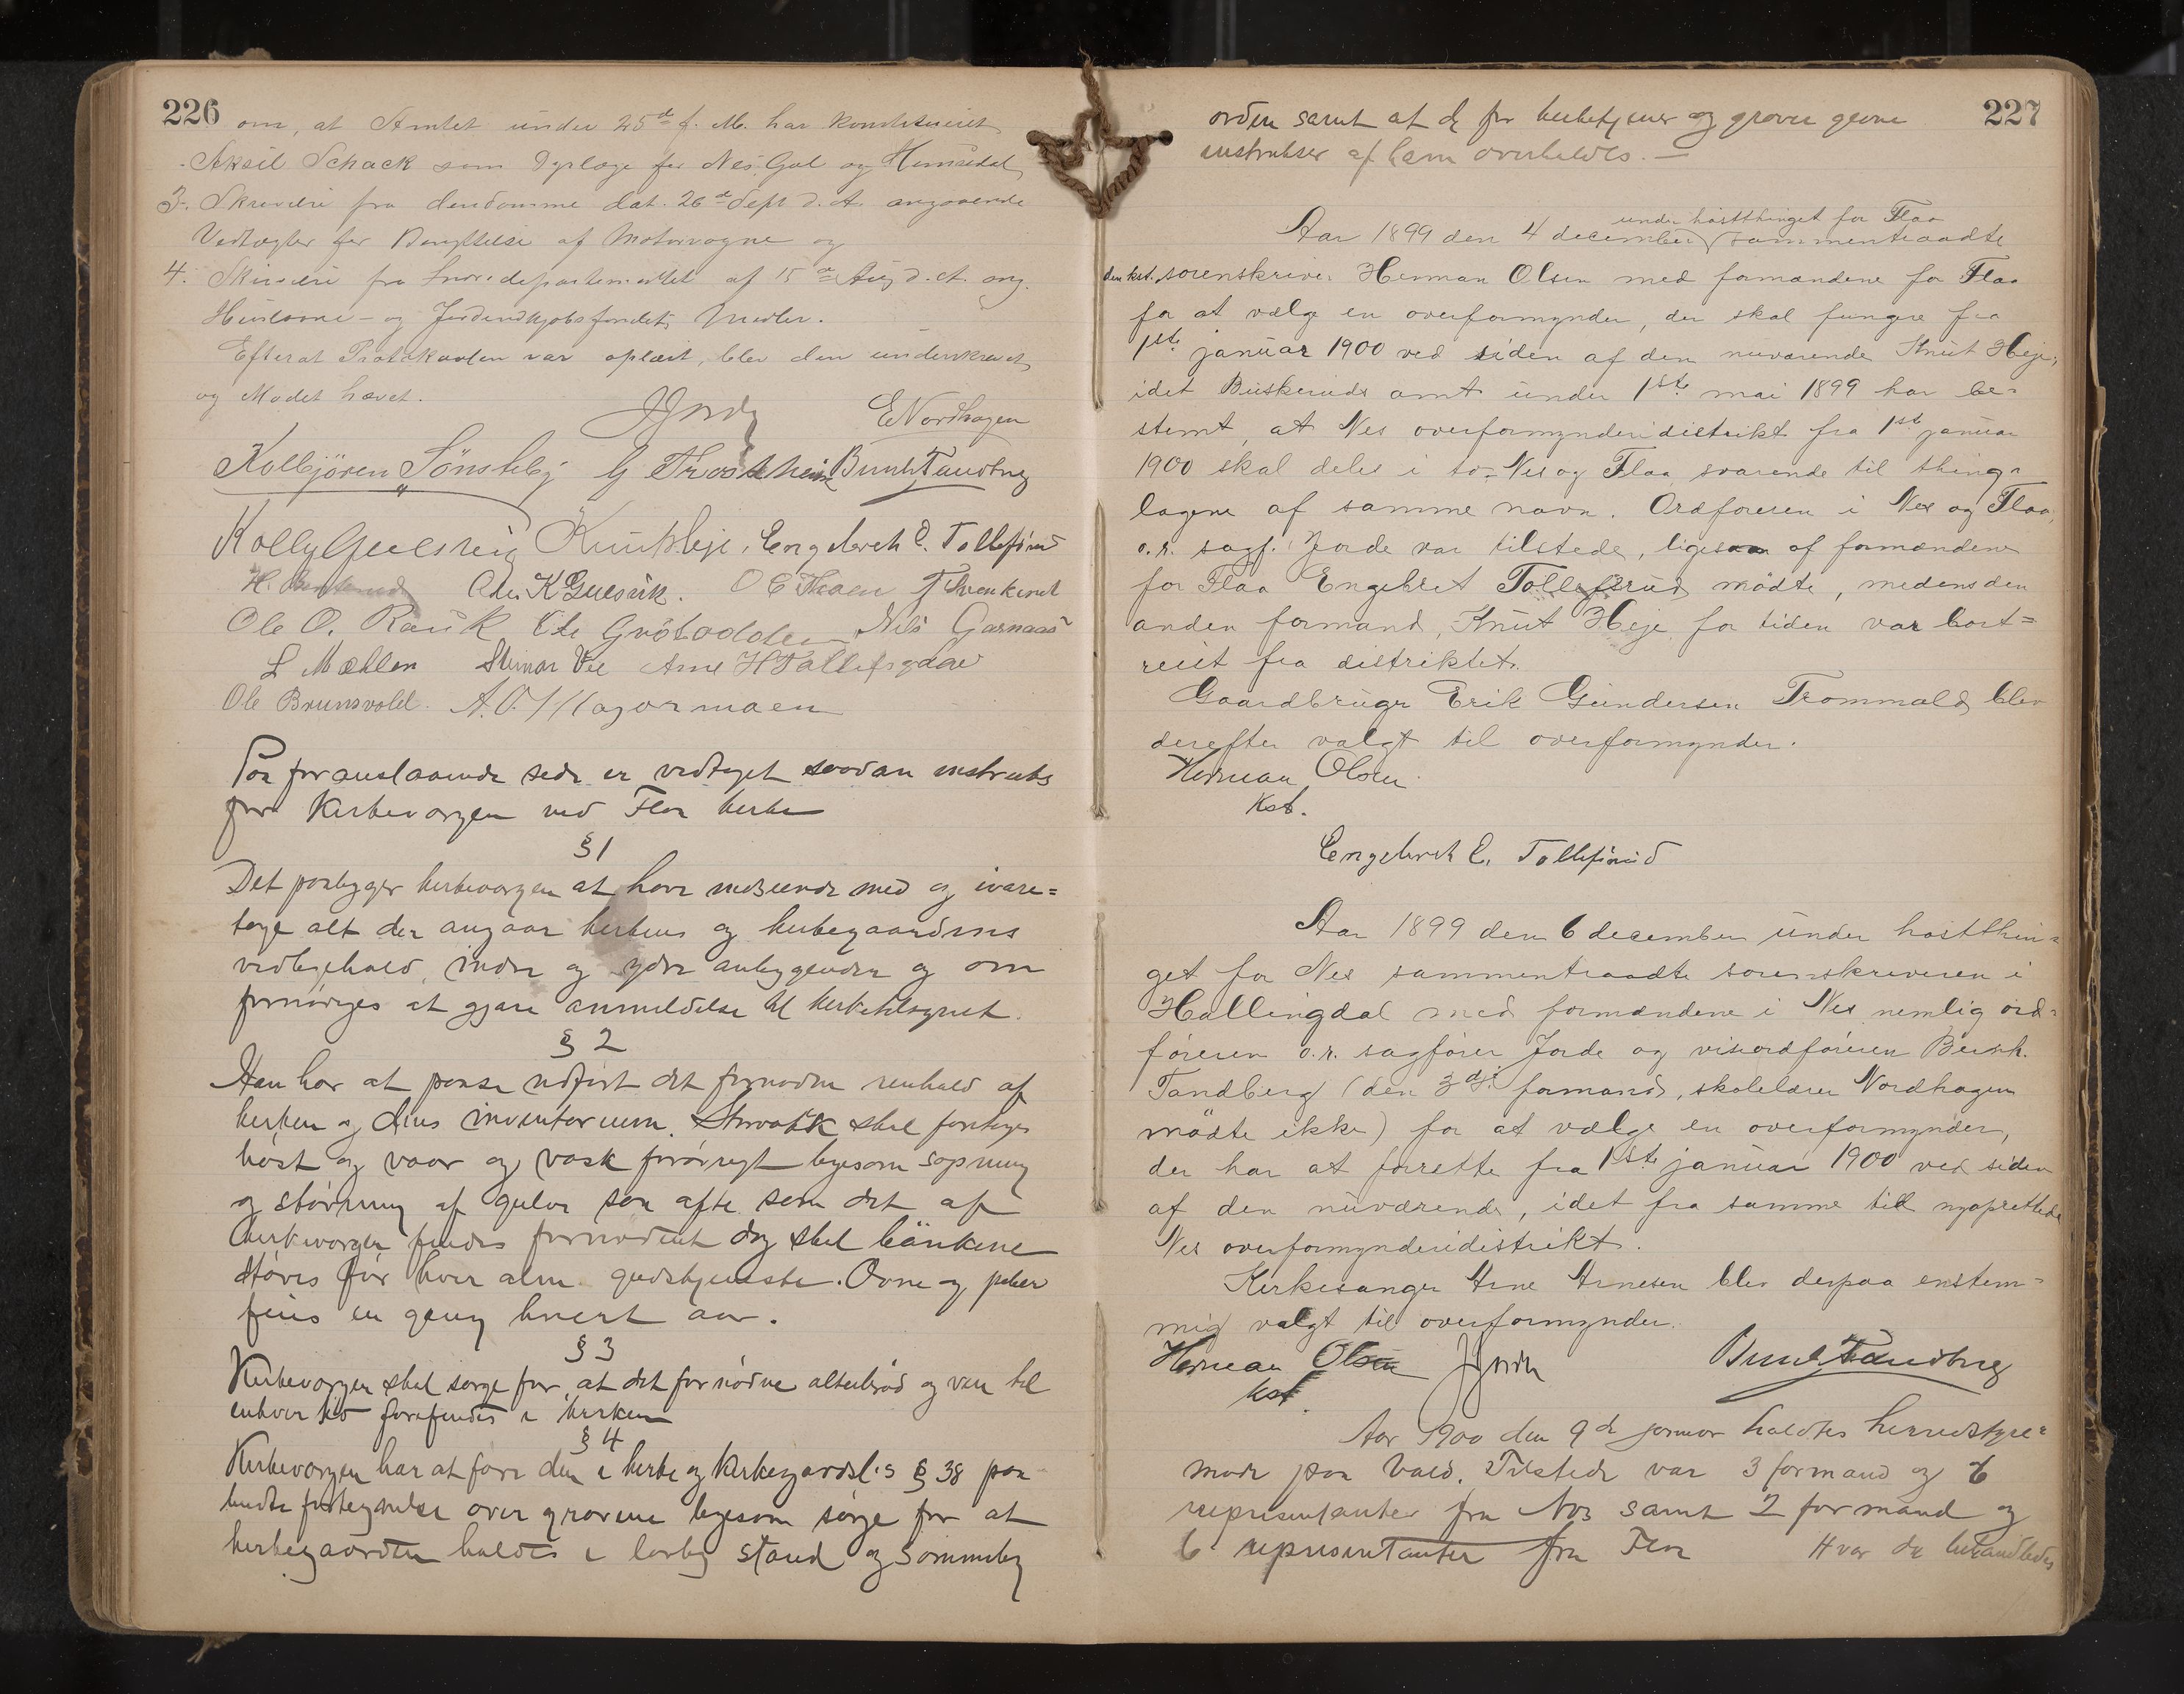 226
om, at Amtet under 25de f. M. har konstitueret
Aksil Schack som Dyrlæge for Nes. Gol og Hemsedal
3. Skrivelse fra densamme dat. 26de Sept d. A. angaaende
Vedtægter for Benyttelse af Motorvogne og
4. Skrivelse fra Indredepartementet af 15de Aug d. A. ang.
Huslaane- og Jordindkjøbsfondets Midler.
Efterat Protokollen var oplæst, blev den underskrevet
og Mødet hævet.
JJorde ENordhagen
Kolbjören Sönsteby G Trostheim Bernh Tandberg
Kolb Gulsvig Knut Heje. Engebreth E. Tollefsrud
H. Ole K Gulsvik. O E Thoen T Svenkerud
Ole O. Rauk Ole Grötadden Nils Garnaas
L Mæhlen Steinar Vee Arne H Tollefsgaar
Ole Brunsvold. A. O. Hagormoen
Paa foranstaaende sede er vedtaget saadan instruks
for Kirkeværgen ved Flaa kirke
§ 1
Det paaligger kirkeværgen at have indseende med og ivare=
tage alt der angaar kirkens og kirkegaardens
vedligehold, indre og ydre anliggender og om
fornødiges at gjøre anmeldelse til kirketilsynet.
§ 2
Han har at paase udført det fornødne renhold af
kirken og dens inventarium. Storvask skal foretages
høst og vaar og vask forøvrigt ligesom sopning
og støvning af gulve saa ofte som det af
kirkeværgen findes fornødent dog skal bänkene
støves før hver alm. gudstjeneste. Ovne og piber
feies en gang hvert aar.
§ 3
Kirkevergen skal sørge for, at det fornødne alterbrød og vin til
enhver tid forefindes i kirken
§ 4
Kirkevergen har at føre den i kirke og kirkegaardsl.s § 38 paa
budte fortegnelse over gravene ligesom sørge for at
kirkegaarden holdes i lovlig stand og sømmelig
227
orden samt at de for kirketjener og graver givne
instrukser af ham overholdes. —
under høstthinget for Flaa
Aar 1899 den 4 december sammentraadte
den kst. sorenskriver Herman Olsen med formændene for Flaa
for at vælge en overformynder, der skal fungere fra
1ste januar 1900 ved siden af den nuværende Knut Heje,
idet Buskeruds amt under 1ste mai 1899 har be-
stemt, at Nes overformynderidistrikt fra 1ste januar
1900 skal deles i to - Nes og Flaa, svarende til thing-
lagene af samme navn. Ordføreren i Nes og Flaa,
o.r. sagf. Jorde var tilstede, ligesom af formændene
for Flaa Engebret Tollefsrud mödte, medens den
anden formand, Knut Heje, for tiden var bort=
reist fra distriktet.
Gaardbruger Erik Gundersen Trommald blev
derefter valgt til overformynder.
Herman Olsen
Kst.
Engebreth E. Tollefsrud
Aar 1899 den 6 december under høstthin=
get for Nes sammentraadte sorenskriveren i
Hallingdal med formændene i Nes nemlig ord=
føreren o.r. sagfører Jorde og viseordføreren Bernh.
Tandberg (den 3die formand, skolelærer Nordhagen
mödte ikke) for at vælge en overformynder,
der har at forrette fra 1ste januar 1900 ved siden
af den nuværende, idet fra samme tid nyoprettede
Nes overformynderidistrikt.
Kirkesanger Arne Arnesen blev derpaa enstem=
mig valgt til overformynder.
Herman Olsen JJorde Bernh Tandberg
kst.
Aar 1900 den 9de januar holdtes herredstyre=
møde paa Vold. Tilstede var 3 formænd og 6
representanter fra Nes samt 2 formænd og
6 representanter fra Flaa Hvor da behandledes